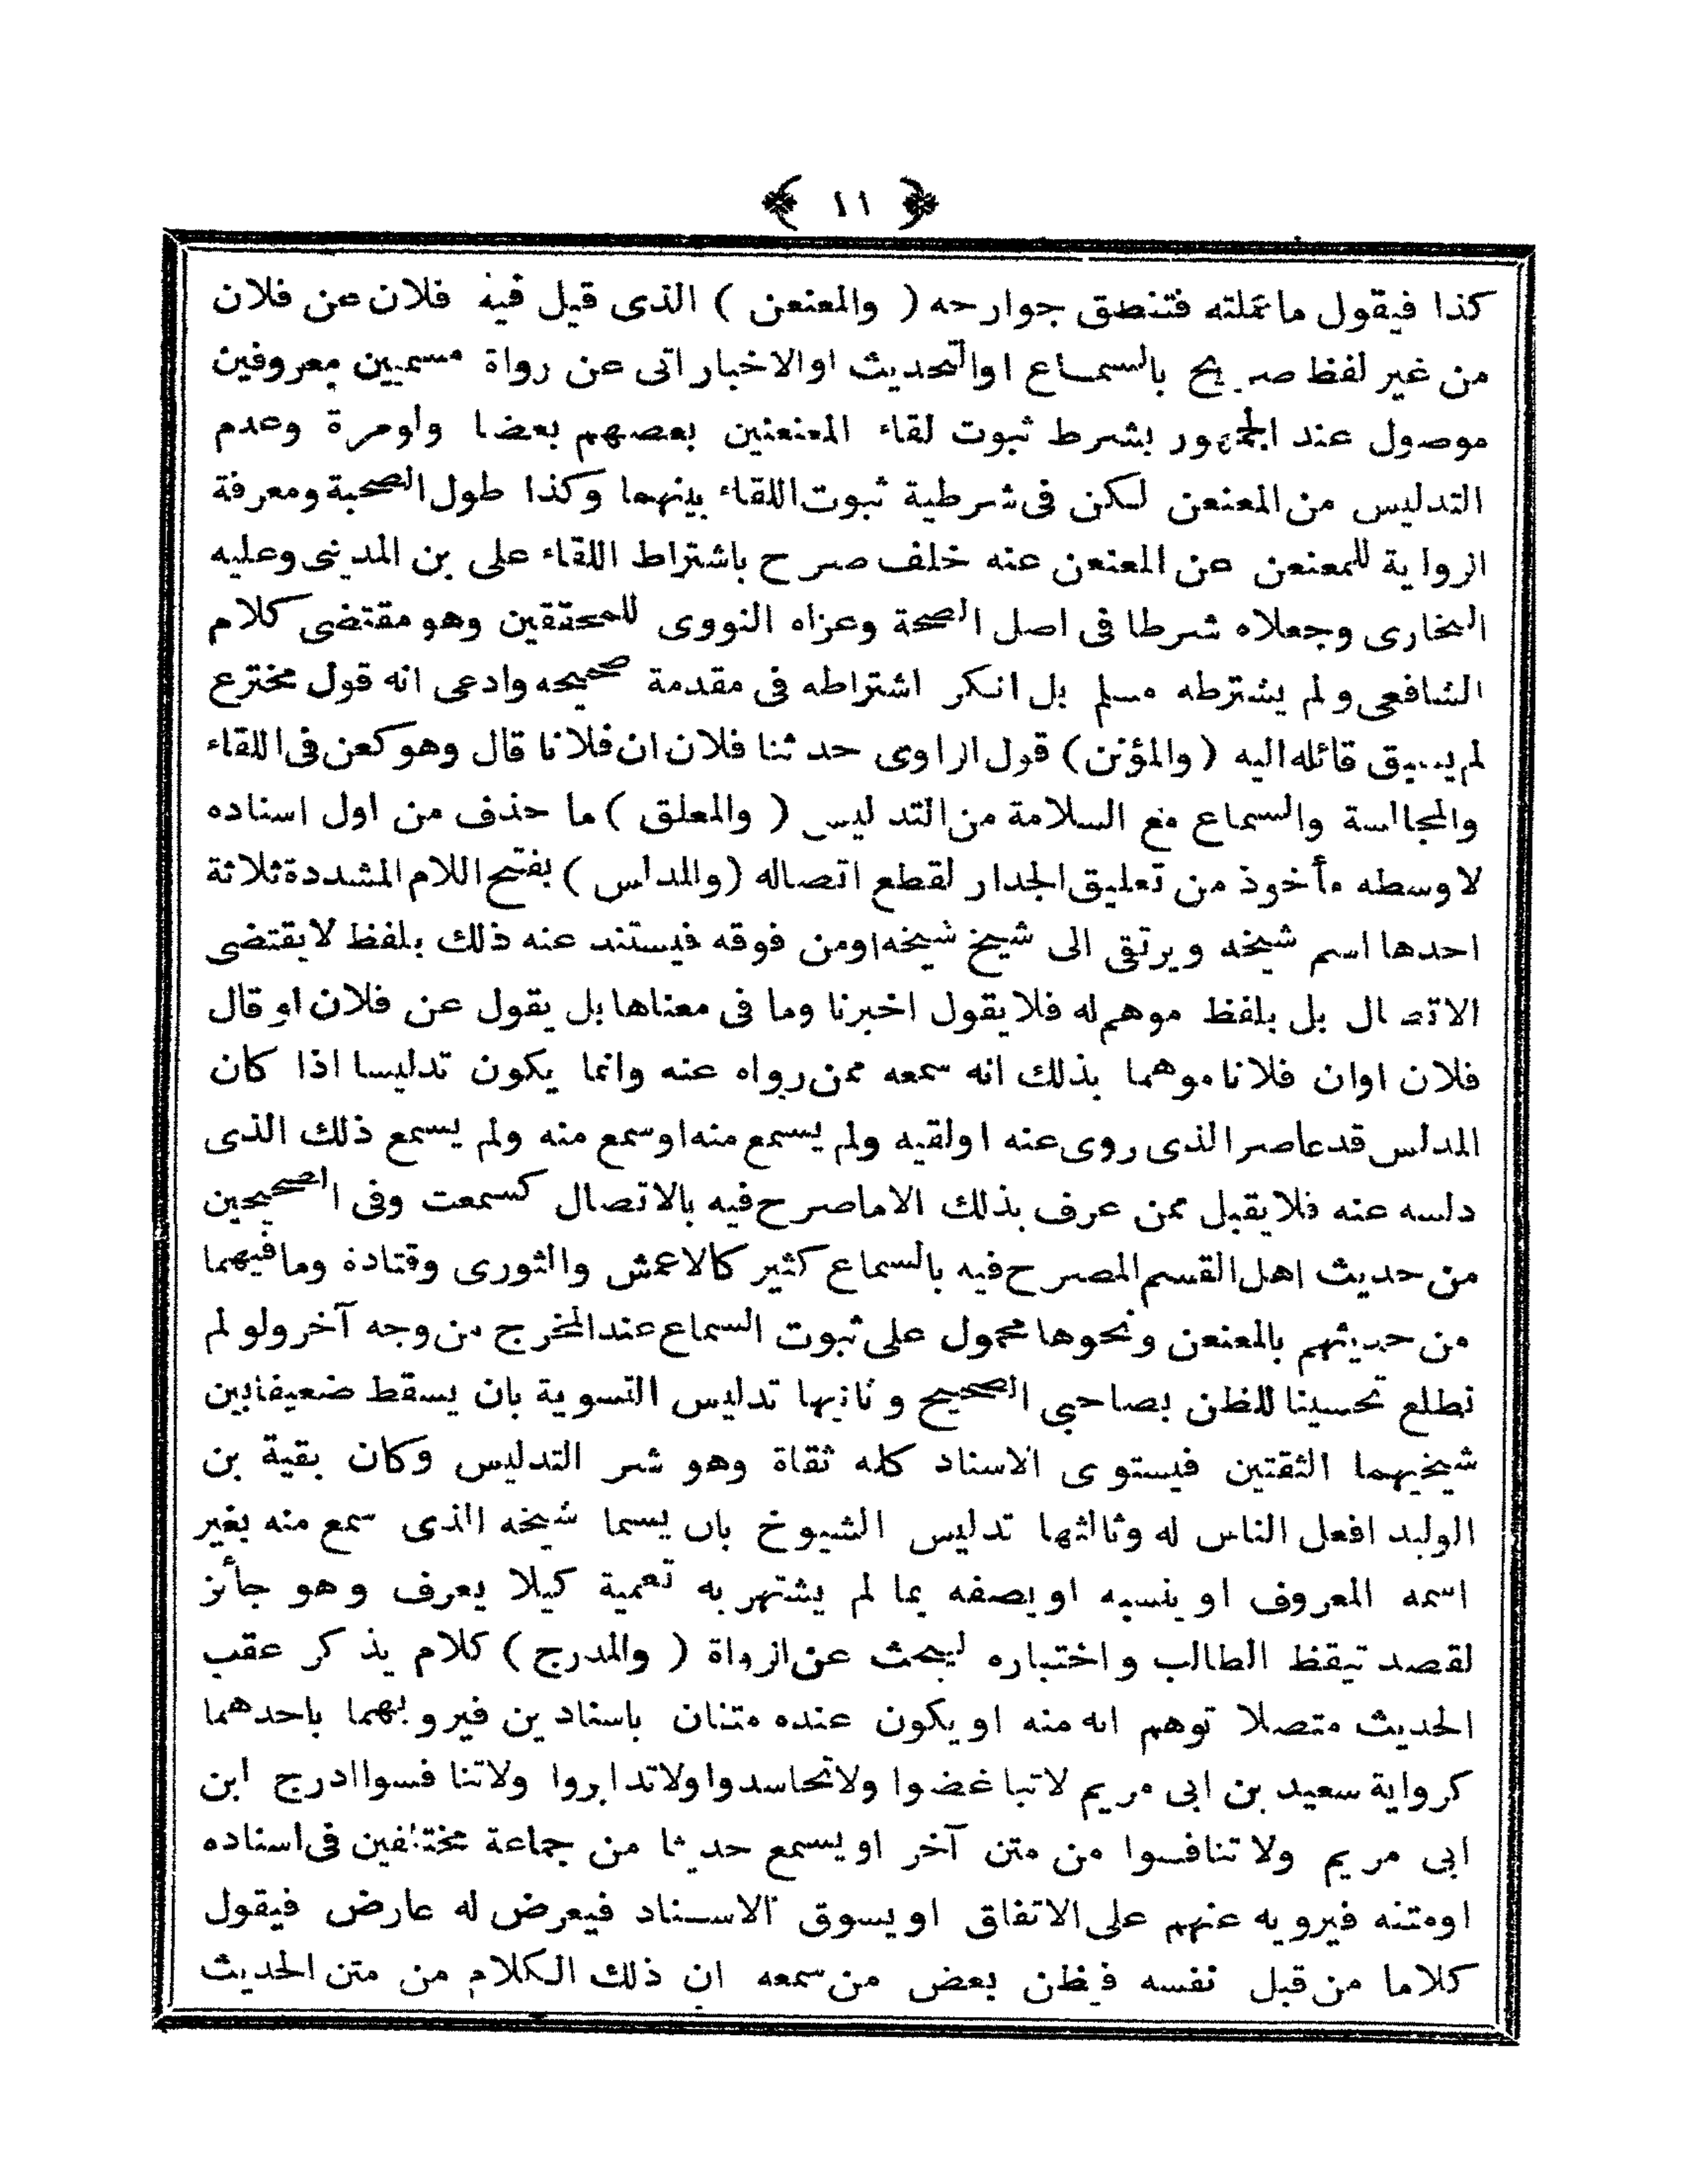 ﴿ ١١ ﴾
كذا فيقول ماعملته فتنطق جوارحه ( والمعنعن ) الذى قيل فيه فلان عن فلان
من غير لفظ صريح بالسماع اوالتحديث اوالاخبار اتى عن رواة مسميين معروفين
موصول عند الجمهور بشرط ثبوت لقاء المعنعنين بعضهم بعضا ولومرة وعدم
التدليس من المعنعن لكن فى شرطية ثبوت اللقاء بينهما وكذا طول الصحبة ومعرفة
الرواية للمعنعن عن المعنعن عنه خلف صرح باشتراط اللقاء على بن المدينى وعليه
البخارى وجعلاه شرطا فى اصل الصحة وعزاه النووى للمحققين وهو مقتضى كلام
الشافعى ولم يشترطه مسلم بل انكر اشتراطه فى مقدمة صحيحه وادعى انه قول مخترع
لم يسبق قائله اليه ( والمؤنن ) قول الراوى حدثنا فلان ان فلانا قال وهو كعن فى اللقاء
والمجالسة والسماع مع السلامة من التدليس ( والمعلق ) ما حذف من اول اسناده
لاوسطه مأخوذ من تعليق الجدار لقطع اتصاله ( والمدلس ) بفتح اللام المشددة ثلاثة
احدها اسم شيخه ويرتقى الى شيخ شيخه اومن فوقه فيستند عنه ذلك بلفظ لايقتضى
الاتصال بل بلفظ موهم له فلا يقول اخبرنا وما فى معناها بل يقول عن فلان او قال
فلان اوان فلانا موهما بذلك انه سمعه ممن رواه عنه وانما يكون تدليسا اذا كان
المدلس قد عاصر الذى روى عنه اولقيه ولم يسمع منه اوسمع منه ولم يسمع ذلك الذى
دلسه عنه فلا يقبل ممن عرف بذلك الا ماصرح فيه بالاتصال كسمعت وفى الصحيحين
من حديث اهل القسم المصرح فيه بالسماع كثير كالاعمش والثورى وقتادة وما فيهما
من حديثهم بالمعنعن ونحوها محمول على ثبوت السماع عند المخرج من وجه آخر ولو لم
نطلع تحسينا للظن بصاحبى الصحيح وثانيها تدليس التسوية بان يسقط ضعيفا بين
شيخيهما الثقتين فيستوى الاسناد كله ثقاة وهو شر التدليس وكان بقية بن
الوليد افعل الناس له وثالثها تدليس الشيوخ بان يسما شيخه الذى سمع منه بغير
اسمه المعروف او ينسبه او يصفه بما لم يشتهر به تعمية كيلا يعرف وهو جأئز
لقصد تيقظ الطالب واختباره ليبحث عن الرواة ( والمدرج ) كلام يذكر عقب
الحديث متصلا توهم انه منه او يكون عنده متنان باسنادين فيرويهما باحدهما
كرواية سعيد بن ابى مريم لاتباغضوا ولاتحاسدوا ولاتدابروا ولاتنافسوا ادرج ابن
ابى مريم ولا تنافسوا من متن آخر او يسمع حديثا من جماعة مختلفين فى اسناده
اومتنه فيرويه عنهم على الاتفاق او يسوق الاسناد فيعرض له عارض فيقول
كلاما من قبل نفسه فيظن بعض من سمعه ان ذلك الكلام من متن الحديث